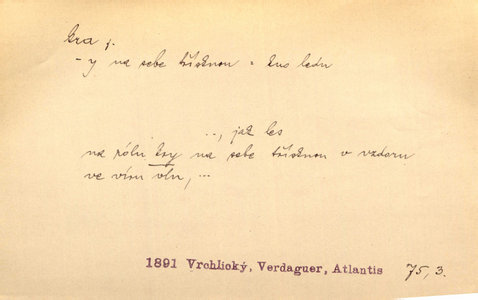 kra, f.
- y na sebe tříštnou = kus ledu
..., jak les
na pólu kry na sebe tříštnou v vzdoru
ve víru vln, ...
1891 Vrchlický, Verdaguer, Atlantis 75, 3.